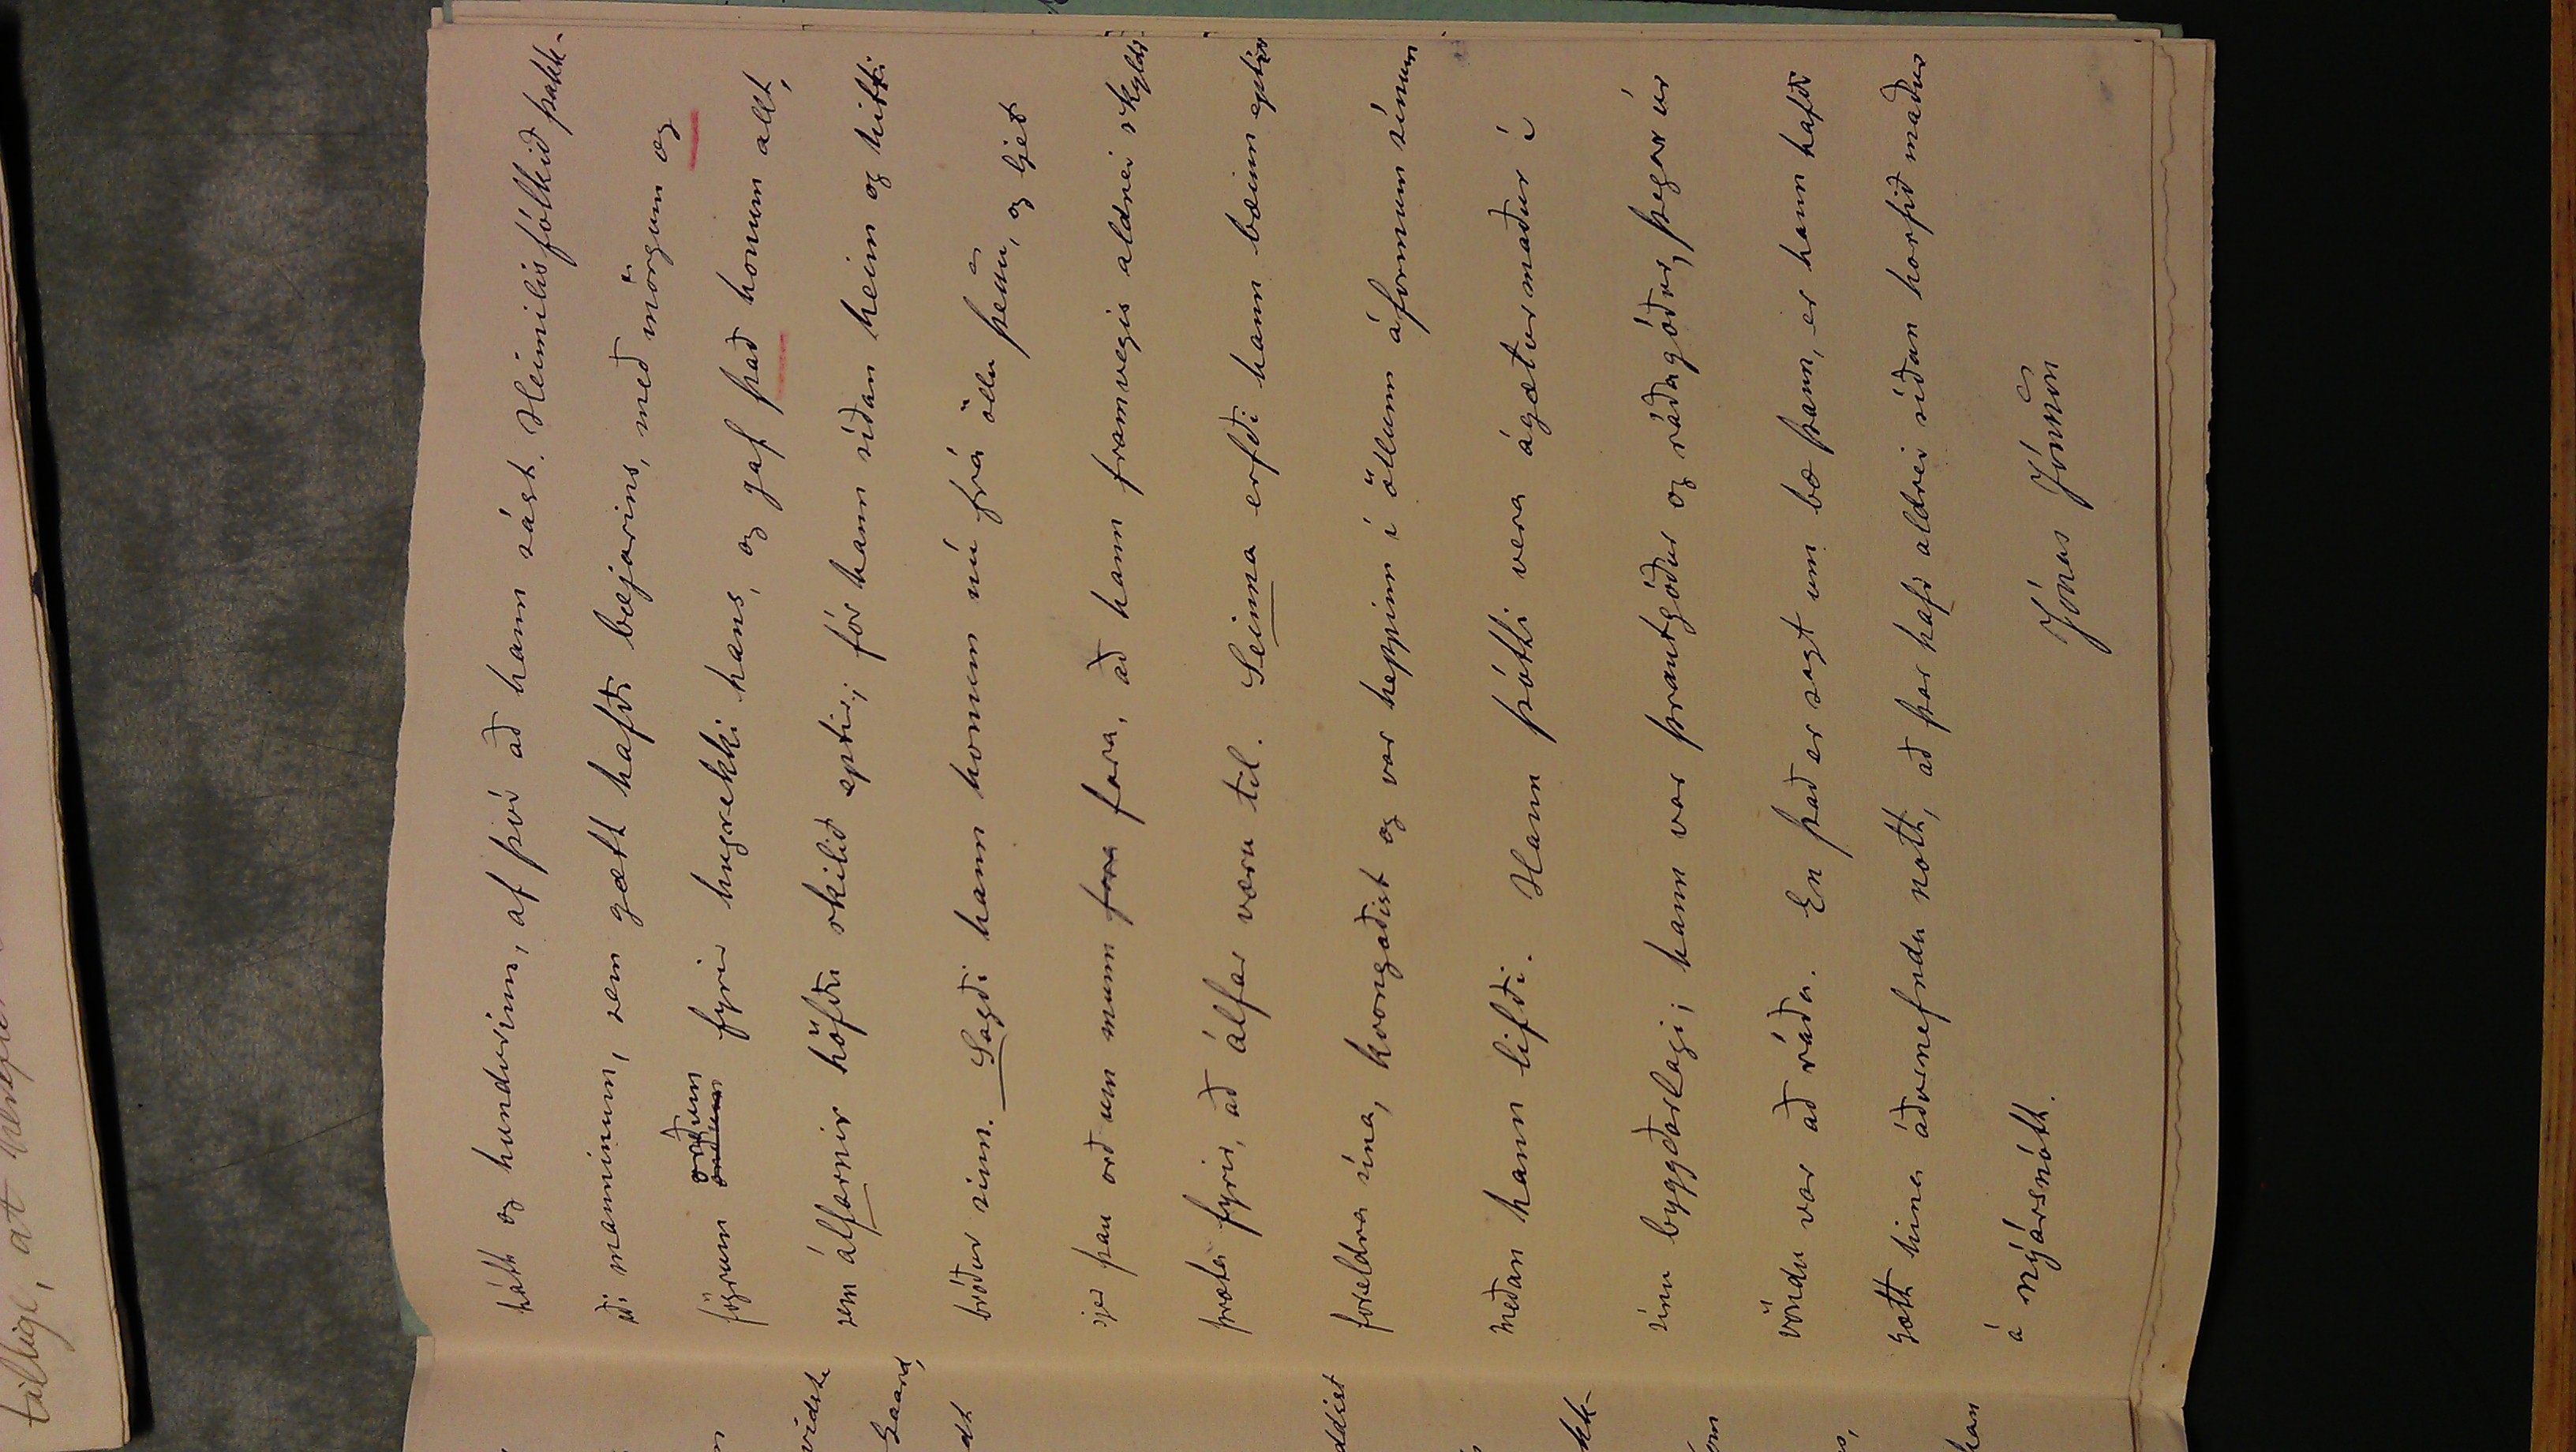 þátt og hundurinn, af því að hann sást. Heimilisfólkið þakk-
aði manninum, sem gætt hafði bæjarins, með mörgum og
fögrum orðum fyrir hugrekki hans, og gaf það honum allt,
sem álfarnir höfðu skilið eptir; fór hann síðan heim og hitti
bróður sinn. Sagði hann honum nú frá öllu þessu, og ljet
sjer þau orð um munn fara fara, að hann framvegis aldrei skyldi
þræta fyrir, að álfar væru til. Seinna erfði hann bæinn eptir
foreldra sína, kvongaðist og var heppinn í öllum áformum sínum
meðan hann lifði. Hann þótti vera ágætur maður í
sínu byggðarlagi; hann var þrautgóður og ráðagóður, þegar úr
vöndu var að ráða. En það er sagt um bæ þann, er hann hafði
gætt hina áðurnefndu nótt, að þar hafi aldrei síðan horfið maður
á nýjársnótt.
Jónas Jónsson
tillige, at
vidste
Gaard,
ddist
kk-
han